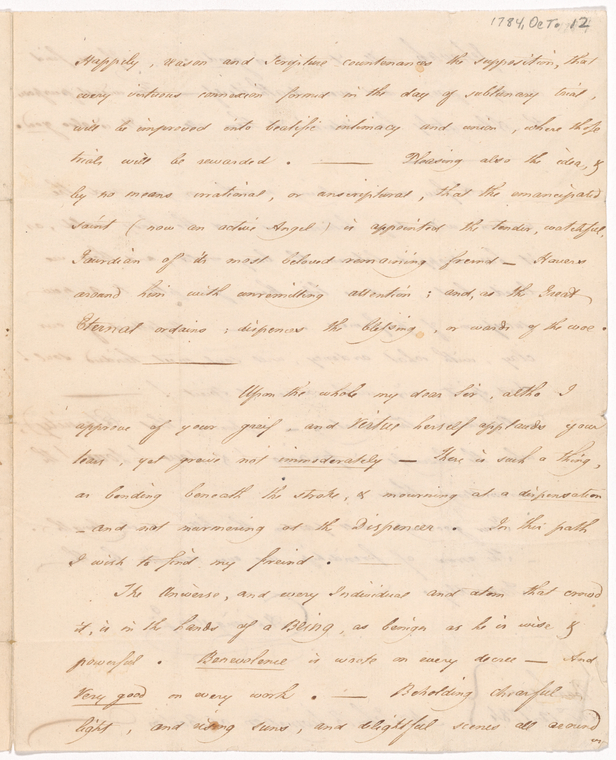 1784, Oct. 12
Happily, reason and Scripture countenances the supposition, that
every virtuous connexion formed in the day of sublunary trial,
will be improved into beatific intimacy and union, where those
trials will be rewarded. — Pleasing also the idea, &
by no means irrational, or unscriptural, that the emancipated
saint (now an active Angel) is appointed the tender, watchful,
Guardian of its most beloved remaining freind — Hovers
around him with unremitting attention; and, as the Great
Eternal ordains; dispences the blessing, or wards of the woe.
Upon the whole my dear Sir, altho I
approve of your greif — and Virtue herself applauds your
tears, yet greive not immoderately — There is such a thing,
as bending beneath the stroke, & mourning at a dispensation
— and not murmering at the Dispencer. In this path
I wish to find my freind.
The Universe, and every Individual and atom that crowd
it, is in the hands of a Being, as benign as he is wise &
powerful. Benevolence is wrote on every decree — And
Very good on every work. — Beholding chearful
light, and rising suns, and delightful scenes all around